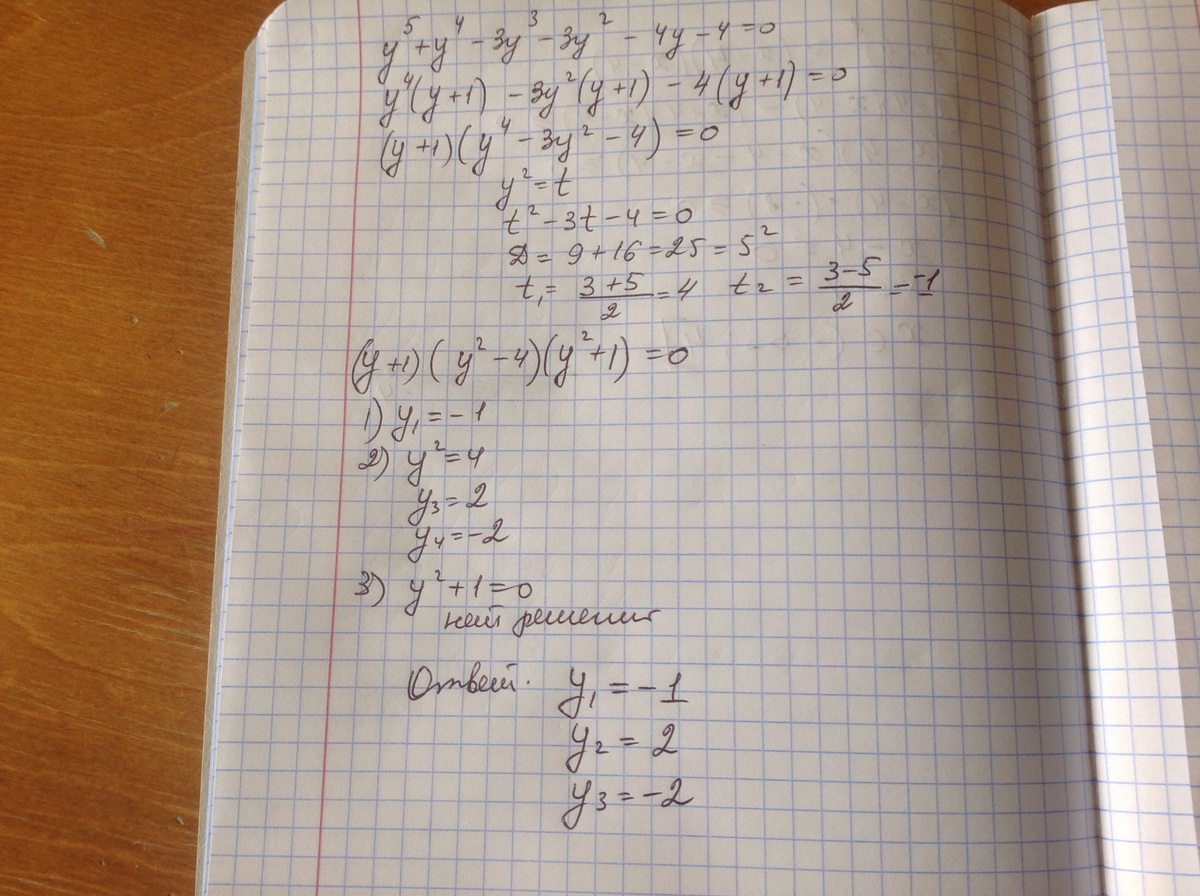 y⁵ + y⁴ - 3y³ - 3y² - 4y - 4 = 0
y⁴(y+1) - 3y²(y+1) - 4(y+1) = 0
(y+1)(y⁴ - 3y² - 4) = 0
y² = t
t² - 3t - 4 = 0
D = 9 + 16 = 25 = 5²
t₁ = (3+5)/2 = 4 t₂ = (3-5)/2 = -1
(y+1)(y² - 4)(y² + 1) = 0
1) y₁ = -1
2) y² = 4
y₃ = 2
y₄ = -2
3) y² + 1 = 0
нет решения
Ответ. y₁ = -1
y₂ = 2
y₃ = -2